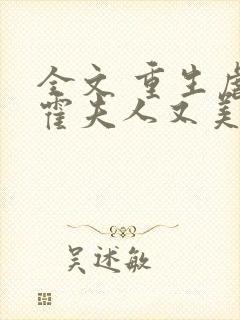 全文 重生虐
霍夫人又美
吴述敏